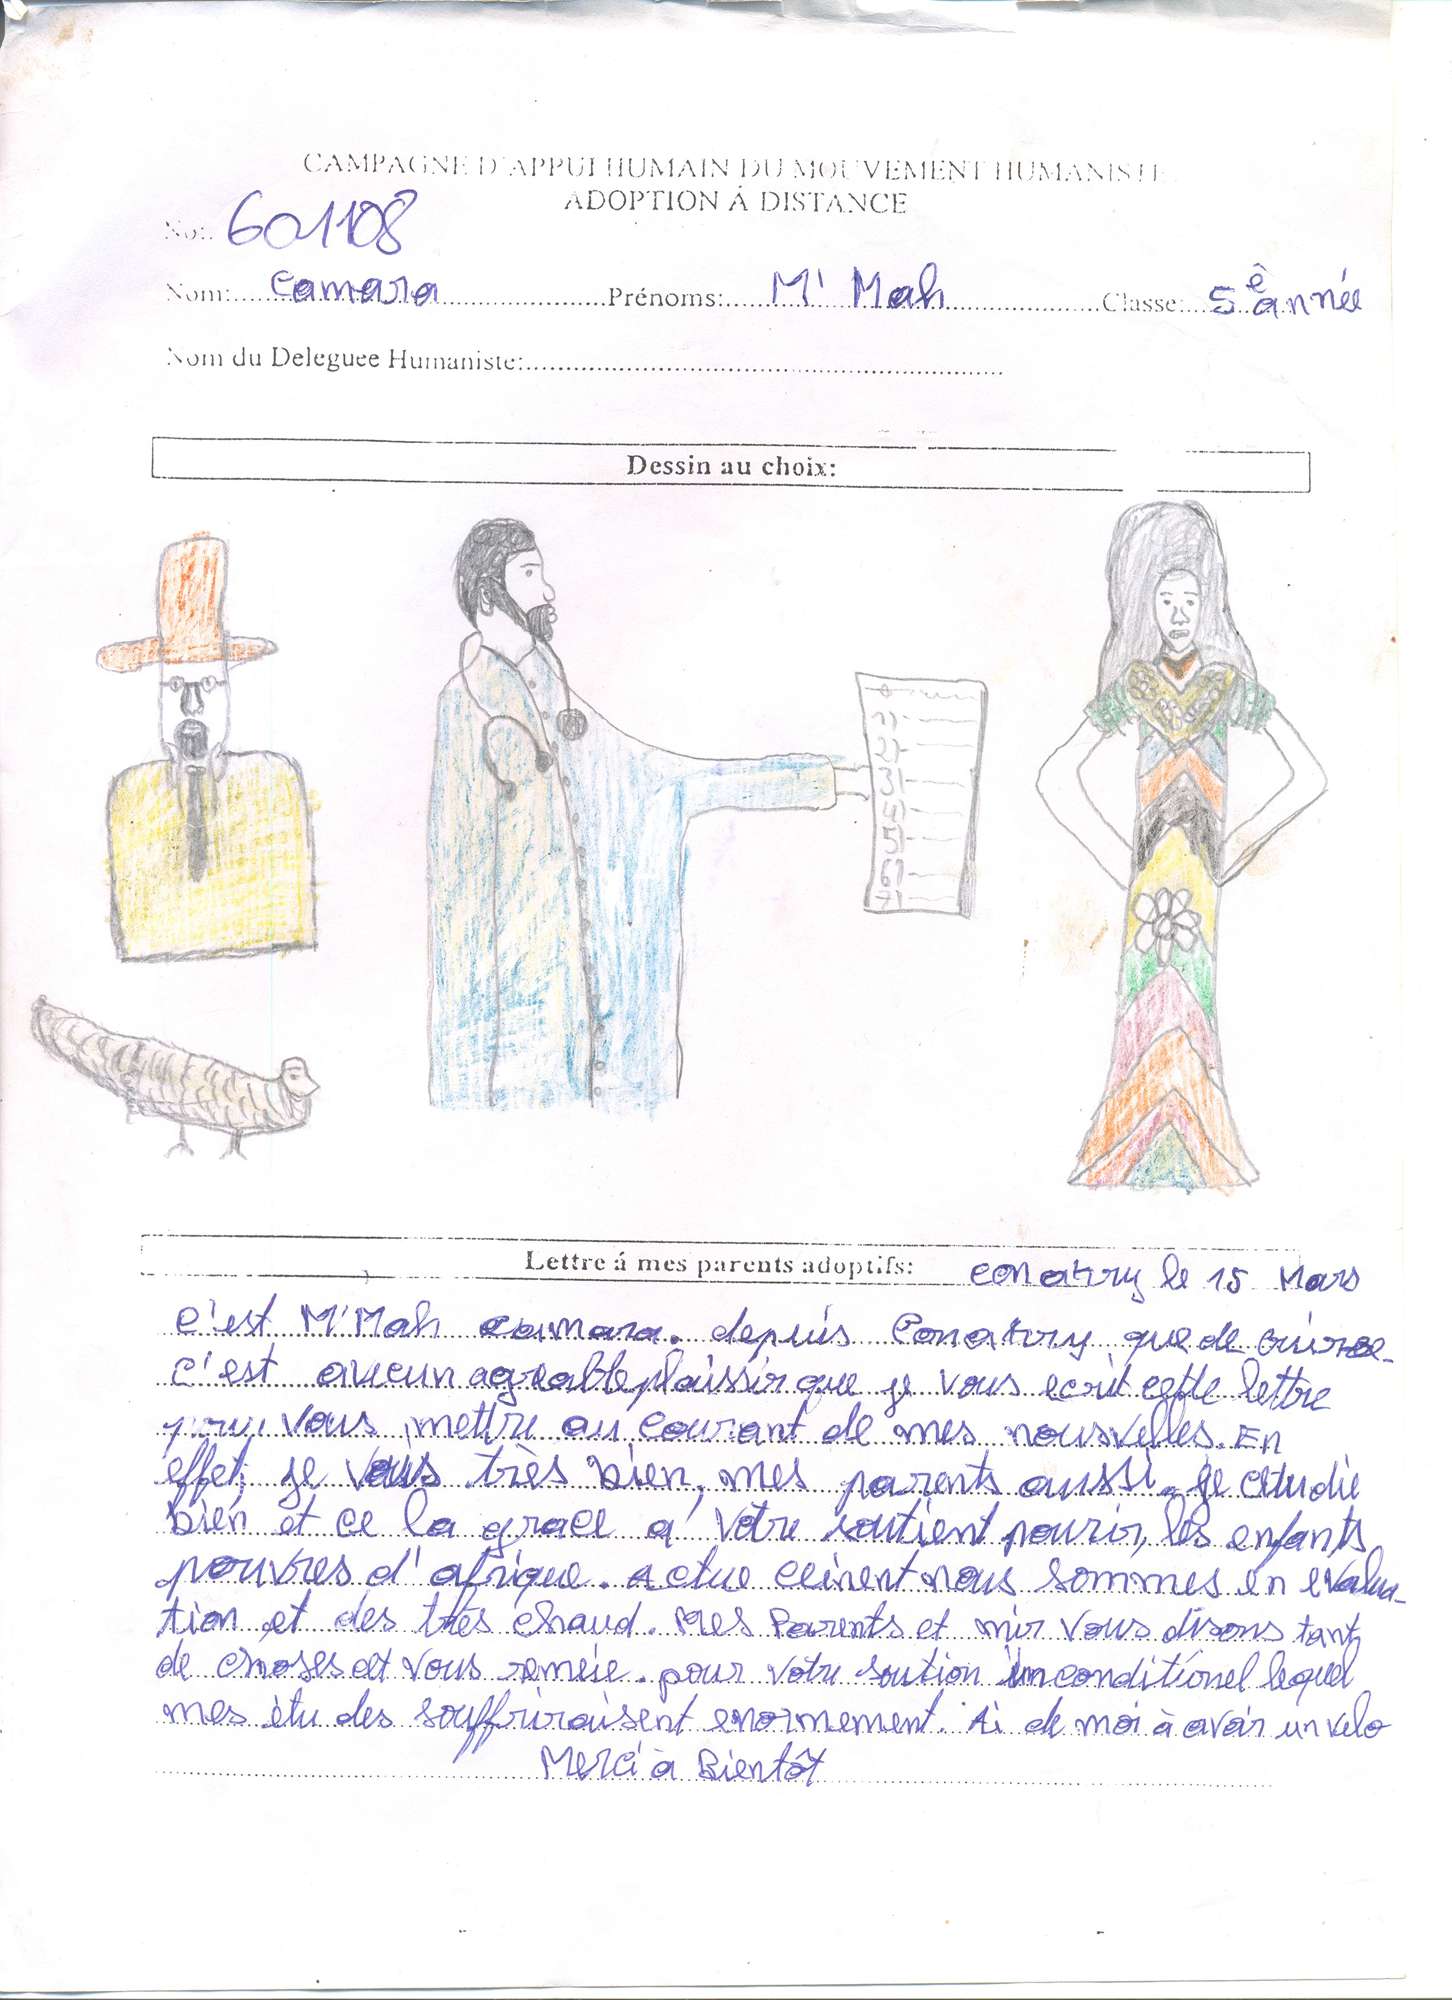 CAMPAGNE D'APPUI HUMAIN DU MOUVEMENT HUMANISTE
ADOPTION Á DISTANCE
No: 601108
Nom: Camara Prénoms: M' Mah Classe: 5ê année
Nom du Deleguee Humaniste:
Dessin au choix:
1)
2)
3)
4)
5)
6)
7)
Lettre á mes parents adoptifs: Conakry le 15 Mars
C'est M'Mah camara. depuis Conakry que de
c'est avecun agreable plaissir que je vous ecrit cette lettre
pour vous mettre au courant de mes nousvelles. En
effet, je vais très bien, mes parents aussi. je etudie
bien et ce la grace a' votre soutient pourir, les enfants
pouvres d'afrique. Actue nous sommes en evalua-
tion et des très chaud. Mes Parents et mir vous disons tant
de choses et vous pour votre soution inconditionel lequel
mes étu des souffriraisent enormement. Ai de moi à avoir un velo
Merci à Bientôt